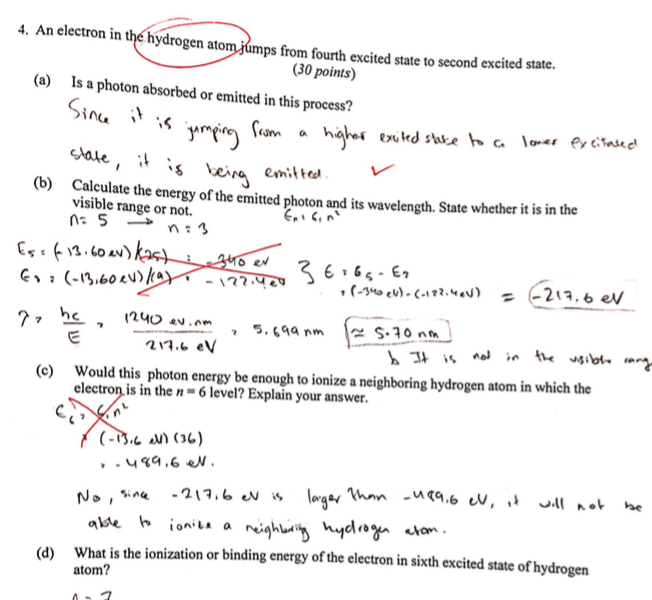 4. An electron in the hydrogen atom jumps from fourth excited state to second excited state.
(30 points)
(a) Is a photon absorbed or emitted in this process?
Since it is jumping from a higher excited state to a lower excitated
state, it is being emitted.
(b) Calculate the energy of the emitted photon and its wavelength. State whether it is in the
visible range or not.
En = E1 n²
n = 5 → n = 3
E5 = (-13.60 eV)(25) = -340 eV
E3 = (-13.60 eV)(9) = -122.4 eV } E = E5 - E3
= (-340 eV) - (-122.4 eV) = -217.6 eV
λ = hc/E = 1240 eV.nm / 217.6 eV = 5.699 nm ≈ 5.70 nm
↳ It is not in the visible rang
(c) Would this photon energy be enough to ionize a neighboring hydrogen atom in which the
electron is in the n = 6 level? Explain your answer.
E6 = E1 n²
= (-13.6 eV) (36)
= -489.6 eV.
No, since -217.6 eV is larger than -489.6 eV, it will not be
able to ionize a neighboring hydrogen atom.
(d) What is the ionization or binding energy of the electron in sixth excited state of hydrogen
atom?
n = 7